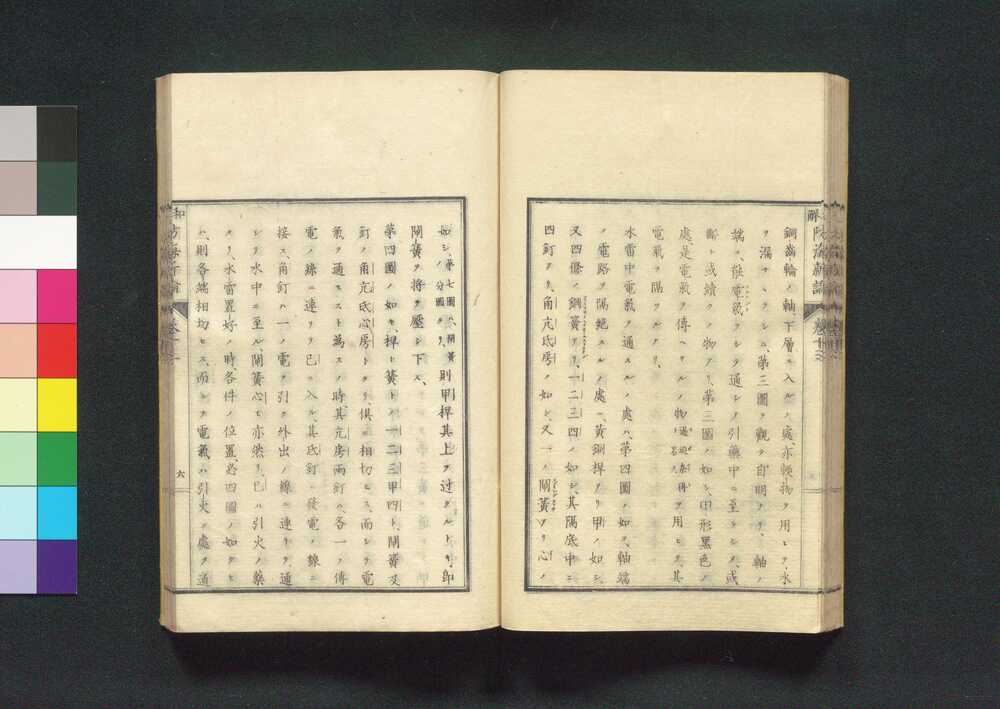 銅齒輪ノ軸、下層ニ入ルノ處、亦輭物ヲ用ヒテ、水
ヲ漏サヾラシム、第三圖ヲ觀テ自明ナリ、軸ノ
端ニ、能電氣ヲシテ通シテ引藥中ニ至ラシメ、或
斷ヒ或續クノ物アリ、第三圖ノ如シ、中形黑色ノ
處是電氣ヲ傳ヘサルノ物ヲ用ヒテ、其
電氣ヲ隔ツルナリ、
水雷中電氣ヲ通スルノ處ハ、第四圖ノ如シ、軸端
ノ電路ヲ隔絶スルノ處ニ、黄銅桿アリ甲ノ如シ、
又四條ノ鋼簧アリ、一二三四ノ如シ、其隔底中ニ
四釘アリ、角亢氐房ノ如シ、又一ノ鬧簧アリ心ノ
如シ、第七圖ハ鬧簧ノ分圖ナリ、則甲桿其上ヲ過クルトキ、即
鬧簧ヲ將テ壓シ下ス、
第四圖ノ如キ、桿ト簧トハ、一二三甲四ト、鬧簧及
釘ノ角亢氐心房トナリ、俱ニ相切セス、而シテ電
氣ヲ通セスト爲ス、ノ時其亢房兩釘ハ、各一ノ傳
電ノ線ニ連リテ巳ニ入ル、其氐釘ハ發電ノ線ニ
接ス、角釘ハ一ノ電ヲ引テ外出ノ線ニ連リテ、通
シテ水中ニ至ル、鬧簧心モ亦然リ、巳ハ引火ノ藥
ナリ、水雷置好ノ時、各件ノ位置、必四圖ノ如クセ
ハ、則各端相切セス、而シテ電氣ハ引火ノ處ヲ通
六